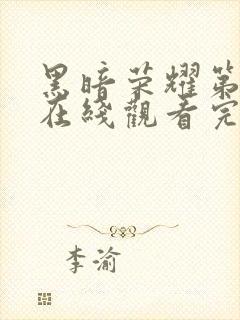 黑暗荣耀第
在线觀看完
李渝